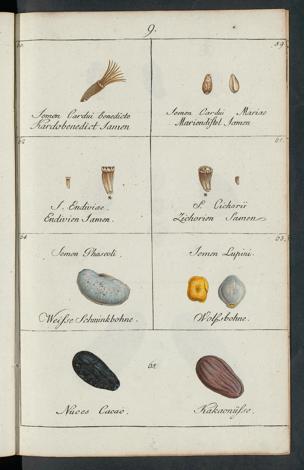 9.
Semen Cardui benedicte
Kardobenedict Samen
59.
Semen Cardui Mariae
Mariendistel Samen
S. Endiviae.
Endivien Samen.
61.
S. Cichorii
Zichorien Samen
64
Semen Phaseoli.
Weiſse Schminkbohne.
63.
Semen Lupini.
Wolfsbohne.
Nuces Cacao.
Kakaonüſse.